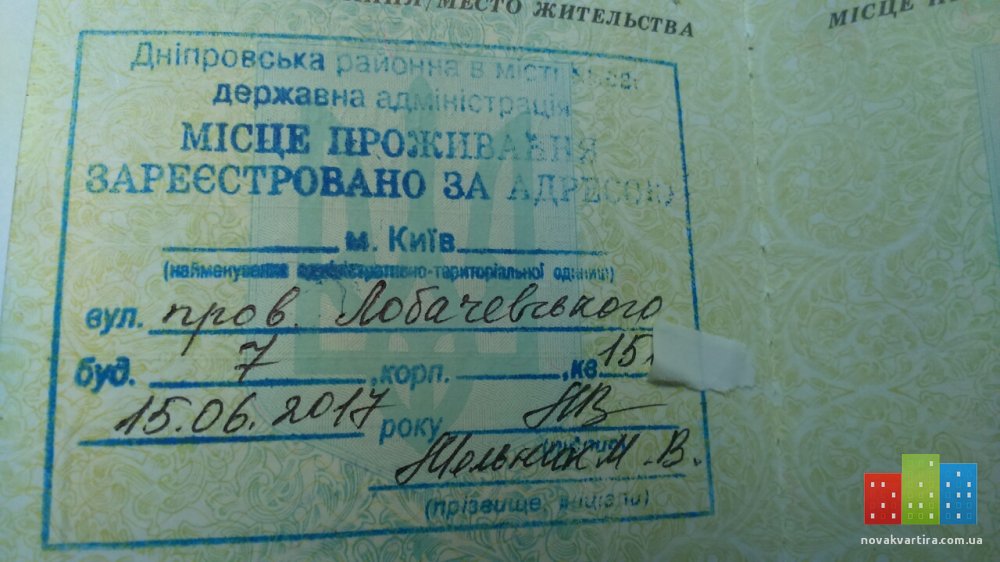 МЕСТО ЖИТЕЛЬСТВА
МІСЦЕ
Дніпровська районна в місті
державна адміністрація
МІСЦЕ ПРОЖИВАННЯ
ЗАРЕЄСТРОВАНО ЗА АДРЕСОЮ
м. Київ
(найменування адміністративно-територіальної одиниці)
вул. пров. Лобачевського
буд. 7 ,корп. ,кв. 15
15.06.2017 року
(підпис)
М.В.
(прізвище, ініціали)
novakvartira.com.ua